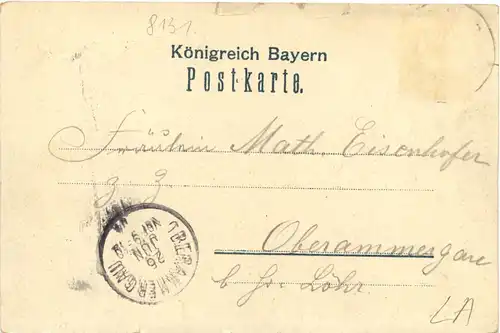 8131.
Königreich Bayern
Postkarte.
Fräulein Math. Eisenhofer
z. Z.
Oberammergau
b. Hr. Löhr
OBERAMMERGAU
26
JUN
LA